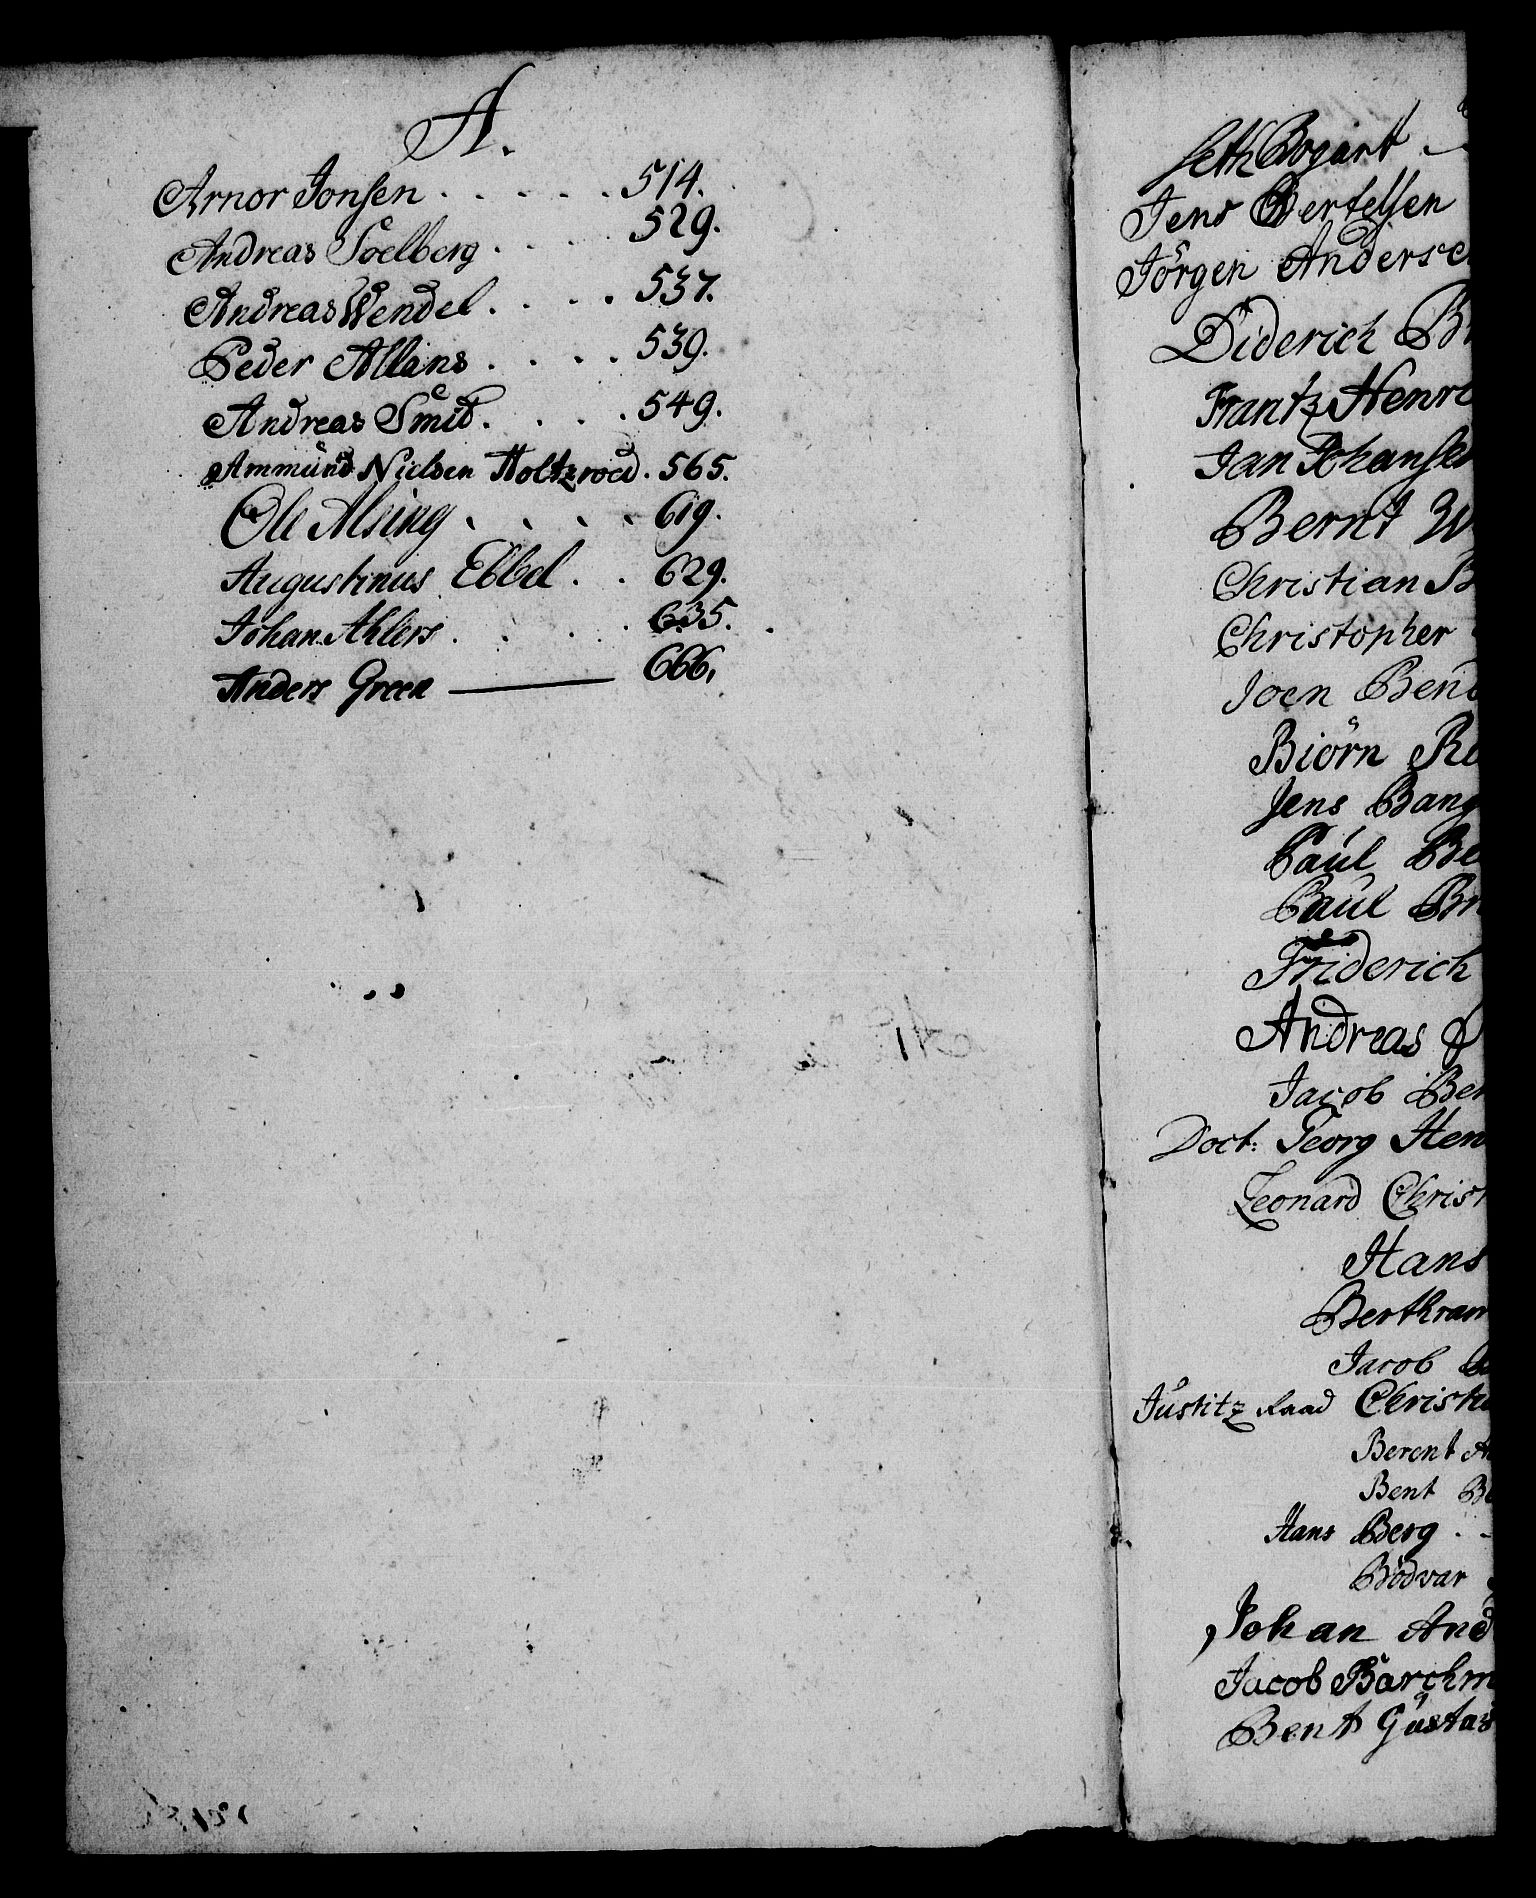 A.
Arnor Jonsen . . . . . . 514.
Andreas Soelberg . . . . 529.
Andreas Wendel . . . . 537.
Peder Allans . . . . 539.
Andreas Smid . . . . 549.
Ammund Nielsen Holtzroed . 565.
Ole Alsing . . . . 619.
Augustinus Ebbel . . 629.
Johan Ahlers . . . . 635.
Anders Green — 666.
Seth Bogart
Jens Bertelsen
Jörgen Anderse
Diderich B
Frantz Henr
Jan Johansen
Bernt W
Christian B
Christopher
Joen Bend
Biörn R
Jens Bang
Paul Be
Paul Br
Friderich
Andreas
Jacob Ber
Doct: Georg Hen
Leonard Christ
Hans
Berthram
Jacob
Justitz Raad Christi
Berent A
Bent B
Hans Berg . .
Bödvar
Johan And
Jacob Barchm
Bent Gustav